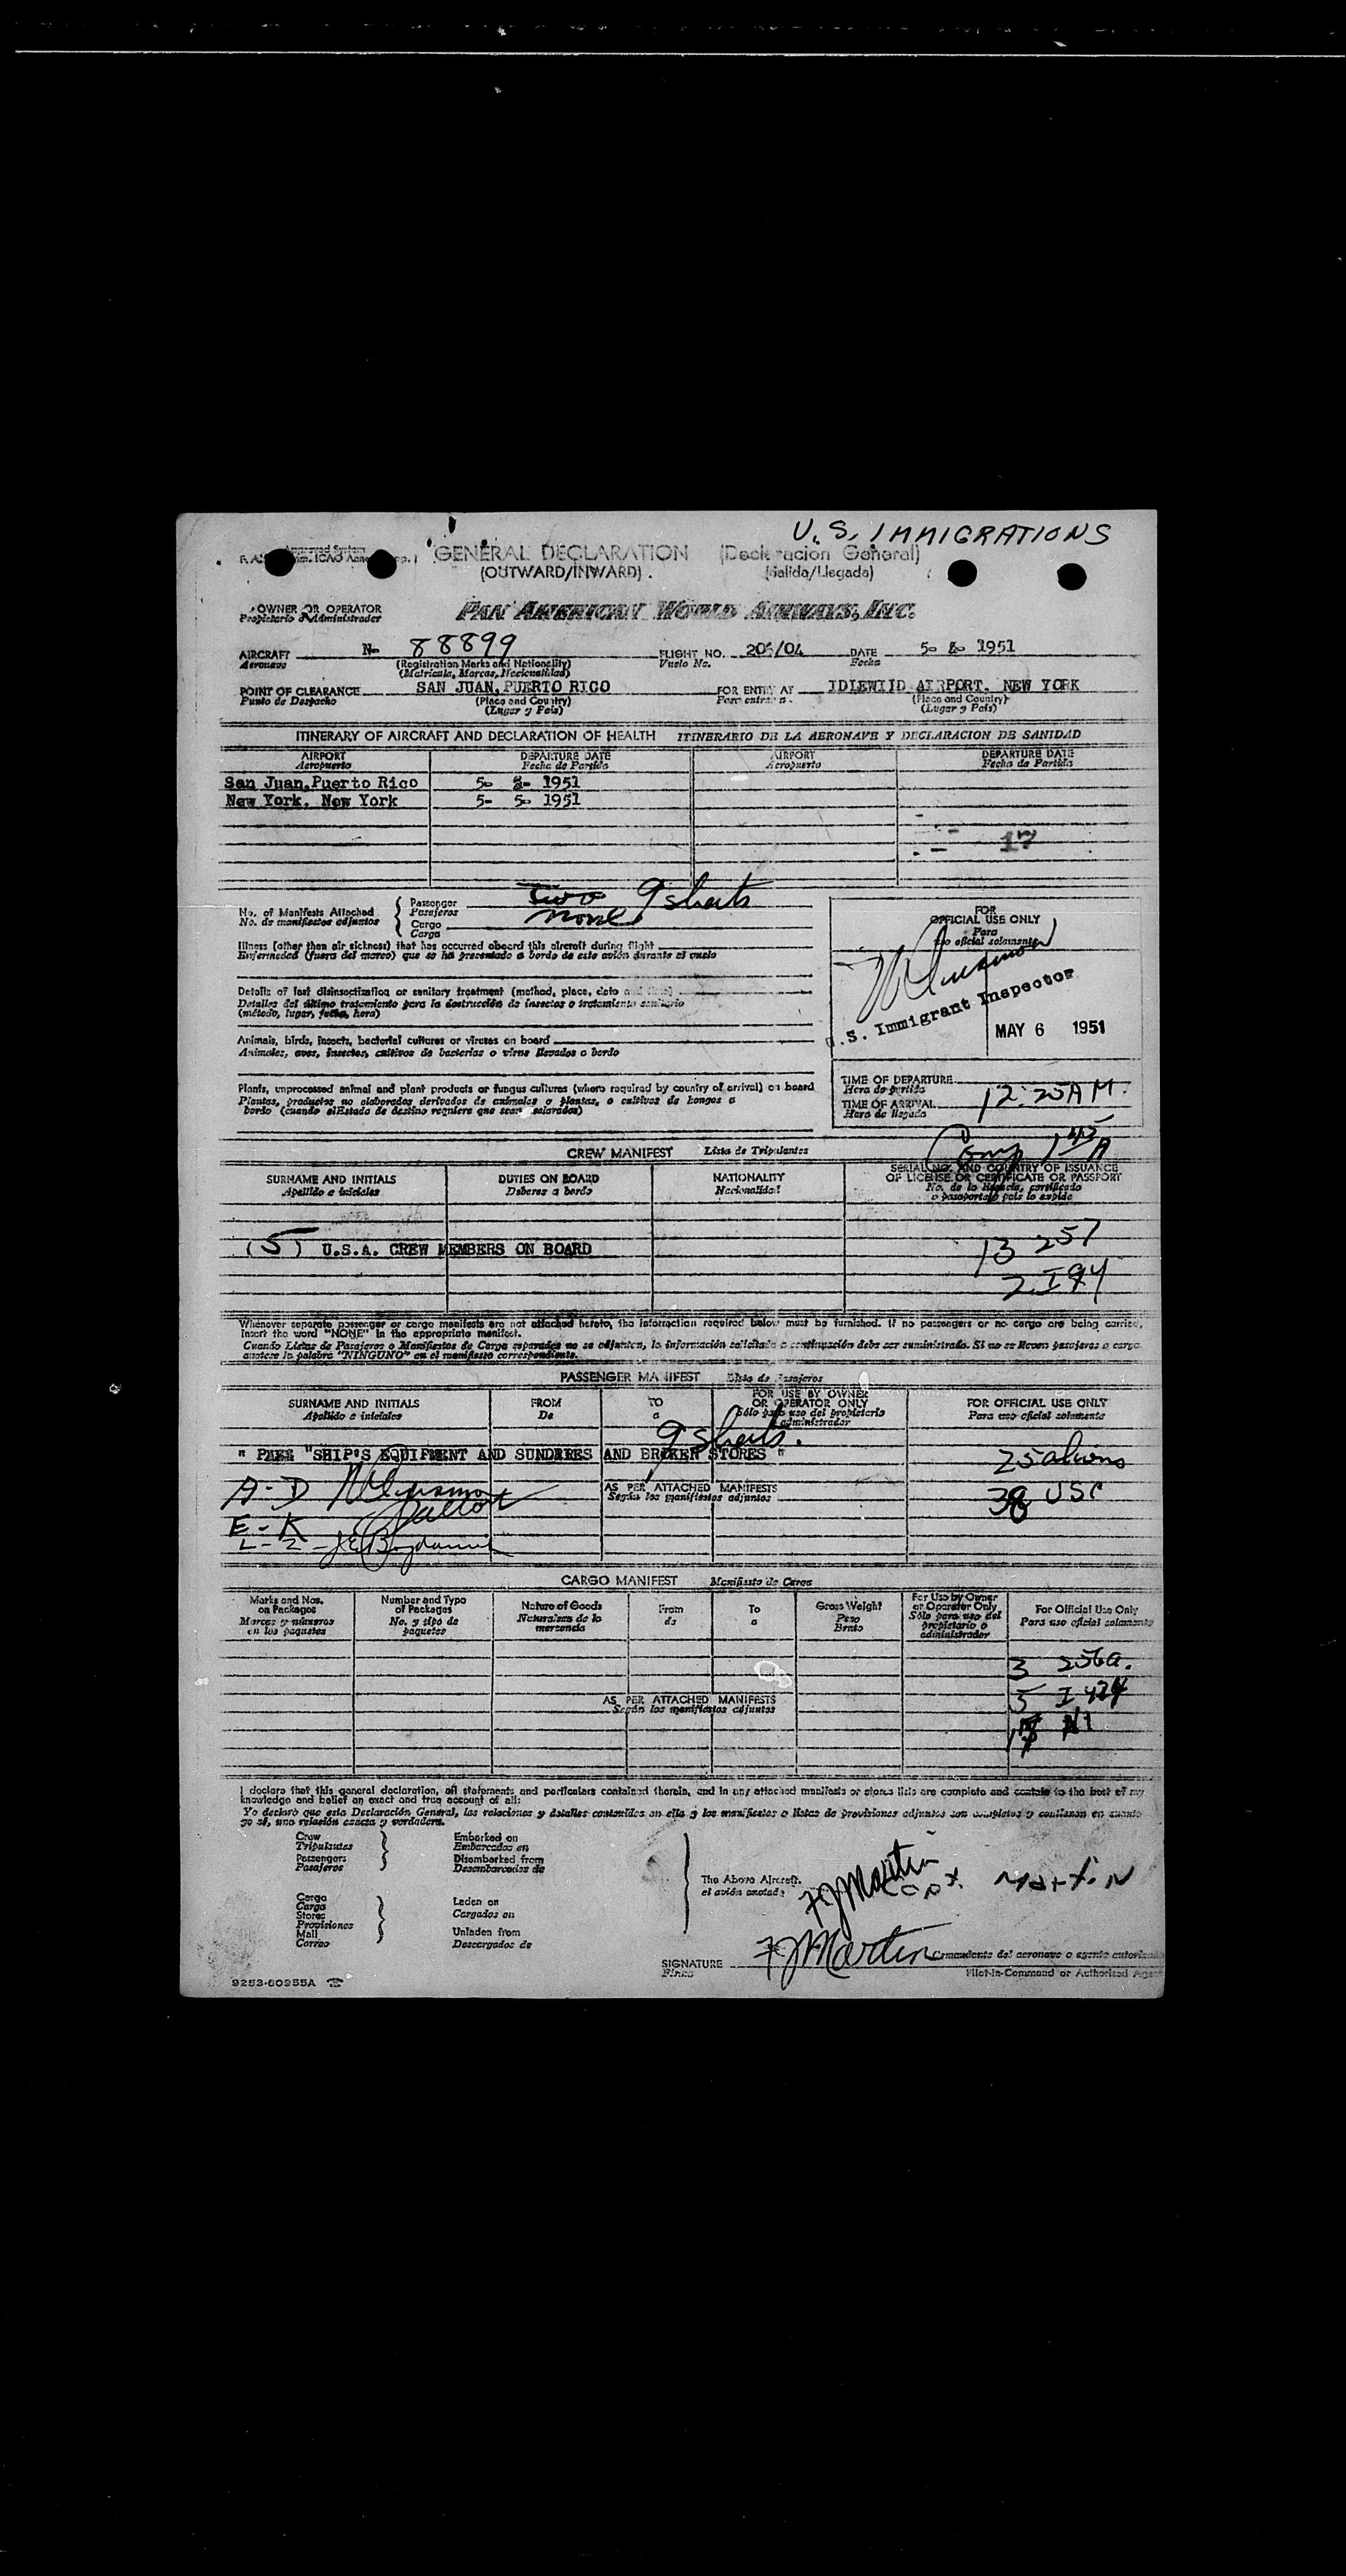 U.S. IMMIGRATIONS
GENERAL DECLARATION (Declaracion General)
(OUTWARD/INWARD). (Salida/Llegada)
OWNER OR OPERATOR PAN AMERICAN WORLD AIRWAYS, INC.
Propietario o Administrador
AIRCRAFT N- 88899 FLIGHT NO. DATE 1951
Aeronave (Registration Marks and Nationality) Vuelo No. Fecha
(Matricula, Marcas, Nacionalidad)
POINT OF CLEARANCE SAN JUAN, PUERTO RICO FOR ENTRY AT IDLEWIID AIRPORT. NEW YORK
Punto de Despacho (Place and Country) Para entrar a. (Place and Country)
(Lugar y País) (Lugar y País)
ITINERARY OF AIRCRAFT AND DECLARATION OF HEALTH ITINERARIO DE LA AERONAVE Y DECLARACION DE SANIDAD
AIRPORT DEPARTURE DATE AIRPORT DEPARTURE DATE
Aeropuerto Fecha de Partida Aeropuerto Fecha de Partida
San Juan,Puerto Rico 1951
New York, New York 5- 5- 1951
17
No. of Manifests Attached Passenger two 9 sheets
No. de manifiestos adjuntos Pasajeros
Cargo none
Carga
Illness (other than air sickness) that has occurred aboard this aircraft during flight
Enfermedad (fuera del mareo) que se ha presentado a bordo de este avión durante el vuelo
Details of last disinsectization or sanitary treatment (method, place, date and time)
Detalles del último tratamiento para la destrucción de insectos o tratamiento sanitario
(método, lugar, fecha, hora)
Animals, birds, insects, bacterial cultures or viruses on board
Animales, aves, insectos, cultivos de bacterias o virus llevados a bordo
Plants, unprocessed animal and plant products or fungus cultures (where required by country of arrival) on board
Plantas, productos no elaborados derivados de animales o plantas, o cultivos de hongos a
bordo (cuando el Estado de destino requiere que sean
FOR
OFFICIAL USE ONLY
Para
uso oficial solamente
U.S. Immigrant Inspector
MAY 6 1951
TIME OF DEPARTURE
Hora de partida
TIME OF ARRIVAL 12:25 AM.
Hora de llegada
Comp 1 45 A
CREW MANIFEST Lista de Tripulantes
SURNAME AND INITIALS DUTIES ON BOARD NATIONALITY SERIAL NO. AND COUNTRY OF ISSUANCE
Apellido e iniciales Deberes a bordo Nacionalidad OF LICENSE OR CERTIFICATE OR PASSPORT
No. de la licencia, certificado
o pasaporte y país lo expide
(5) U.S.A. CREW MEMBERS ON BOARD 13 257
2 I 94
Whenever separate passenger or cargo manifests are not attached hereto, the information required below must be furnished. If no passengers or no cargo are being carried,
insert the word "NONE" in the appropriate manifest.
Cuando Listas de Pasajeros o Manifiestos de Carga separados no se adjunten, la información solicitada a continuación debe ser suministrada. Si no se lleven pasajeros o carga
anótese la palabra "NINGUNO" en el manifiesto correspondiente.
PASSENGER MANIFEST Lista de Pasajeros
SURNAME AND INITIALS FROM TO FOR USE BY OWNER OR OPERATOR ONLY FOR OFFICIAL USE ONLY
Apellido e iniciales De a Sólo para uso del propietario o administrador Para uso oficial solamente
9 sheets.
"SHIP'S EQUIPMENT AND SUNDRIES AND BROKEN STORES " 25 aliens
A-D AS PER ATTACHED MANIFESTS 38 USC
Según los manifiestos adjuntos
E-K
L-Z
CARGO MANIFEST Manifiesto de Carga
Marks and Nos. on Packages Number and Type of Packages Nature of Goods From To Gross Weight For Use by Owner or Operator Only For Official Use Only
Marcas y números en los paquetes No. y tipo de paquetes Naturaleza de la mercancía de a Peso Bruto Sólo para uso del propietario o administrador Para uso oficial solamente
3 256a.
AS PER ATTACHED MANIFESTS 5 I 424
Según los manifiestos adjuntos
I declare that this general declaration, all statements and particulars contained therein, and in any attached manifests or stores lists are complete and contain to the best of my
knowledge and belief an exact and true account of all:
Yo declaro que esta Declaración General, las relaciones y detalles contenidos en ella y los manifiestos o listas de provisiones adjuntos son completos y contienen en cuanto
yo sé, una relación exacta y verdadera.
Crew Embarked on
Tripulantes Embarcados en
Passengers Disembarked from
Pasajeros Desembarcados de
The Above Aircraft. FJMartin CAPT. MARTIN
el avión anotado
Cargo Laden on
Carga Cargados en
Stores
Provisiones
Mail Unladen from
Correo Descargados de
SIGNATURE FJMartin Comandante del aeronave o agente autorizado
Firma Pilot-in-Command or Authorized Agent
9253-60955A